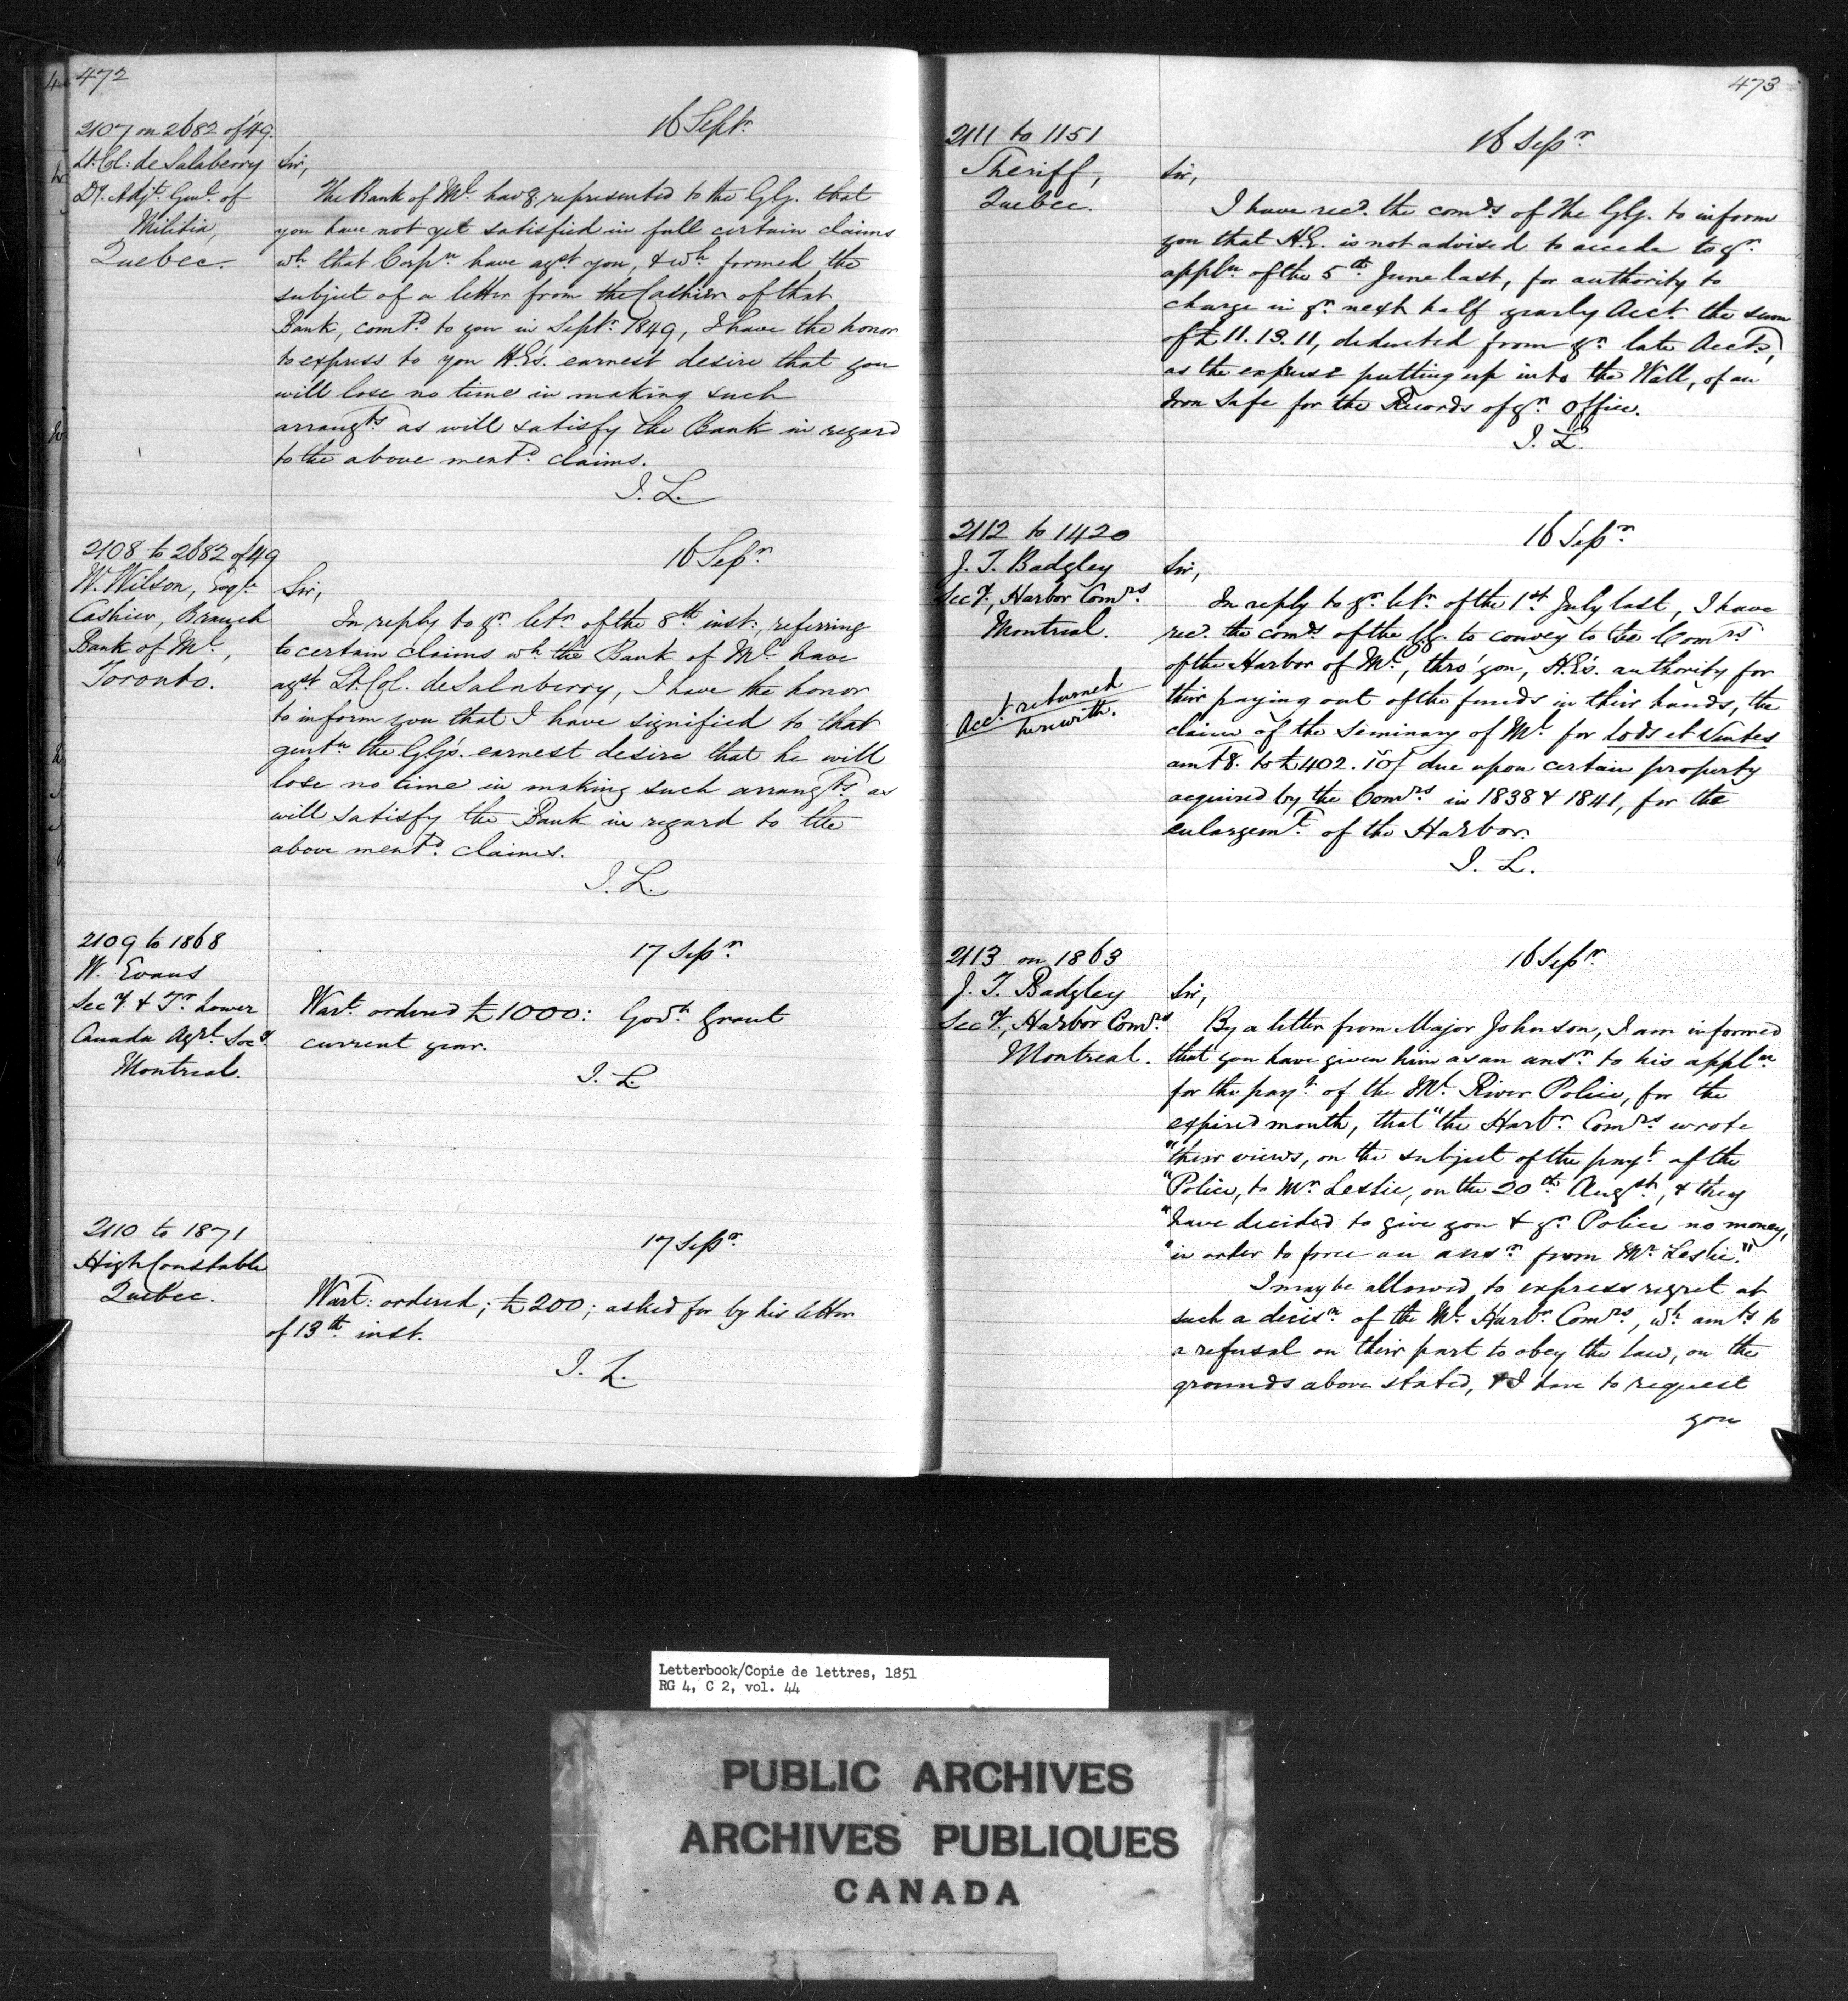 472
2107 on 2682 of '49.
Lt. Col: de Salaberry
Dy. Adjt. Genl. of
Militia,
Quebec.
16 Septr.
Sir,
The Bank of Ml. havg. represented to the G.G. that
you have not yet satisfied in full certain claims
wh. that Corpn. have agst. you, & wh. formed the
subject of a letter from the Cashier of that
Bank, comd. to you in Septr. 1849, I have the honor
to express to you H.E's. earnest desire that you
will lose no time in making such
arrangts. as will satisfy the Bank in regard
to the above mentd. claims.
J. L.
2108 to 2682 of 49
W. Wilson, Esqre.
Cashier, Branch
Bank of Ml.,
Toronto.
16 Sepr.
Sir,
In reply to yr. letr. of the 8th inst:, referring
to certain claims wh. the Bank of Ml. have
agst. Lt. Col. de Salaberry, I have the honor
to inform you that I have signified to that
gentn. the G.G's. earnest desire that he will
lose no time in making such arrangts. as
will satisfy the Bank in regard to the
above mentd. claims.
J. L.
2109 to 1868
W. Evans
Secy. & Tr. Lower
Canada Agrl. Socy.
Montreal.
17 Sepr.
Wart. ordered £1000: Govt. Grant
current year.
J. L.
2110 to 1871
High Constable
Quebec.
17 Sepr.
Wart: ordered; £200; asked for by his letter
of 13th inst.
J. L.
473
2111 to 1151
Sheriff,
Quebec.
16 Sepr.
Sir,
I have recd. the comds of the G.G. to inform
you that H.E. is not advised to accede to yr.
appln. of the 5th June last, for authority to
charge in yr. next half yearly Acct. the sum
of £11.13.11, deducted from yr. late Accts,
as the expense putting up into the Wall, of an
Iron Safe for the Records of yr. Office.
J. L.
2112 to 1420
J. T. Badgley
Secy., Harbor Comrs.
Montreal.
Acct. returned
herewith.
16 Sepr.
Sir,
In reply to yr. letr. of the 1st. July last, I have
recd. the comds of the GG. to convey to the Comrs
of the Harbor of Ml., thro' you, H.E's. authority for
their paying out of the funds in their hands, the
claim of the Seminary of Ml. for lods et Ventes
amtg. to £402. due upon certain property
acquired by the Comrs. in 1838 & 1841, for the
enlargemt. of the Harbor.
J. L.
2113 on 1863
J. T. Badgley
Secy., Harbor Comrs.
Montreal.
16 Sepr.
Sir,
By a letter from Major Johnson, I am informed
that you have given him as an ansr. to his appln.
for the payt. of the Ml. River Police, for the
expired month, that "the Harbr. Comrs. wrote
"their views, on the subject of the payt. of the
"Police, to Mr. Leslie, on the 20th Augst., & they
"have decided to give you & yr. Police no money,
"in order to force an ansr. from Mr. Leslie."
I may be allowed to express regret at
such a decisn. of the Ml. Harbr. Comrs., wh. amts to
a refusal on their part to obey the law, on the
grounds above stated, & I have to request
you
Letterbook/Copie de lettres, 1851
RG 4, C 2, vol. 44
PUBLIC ARCHIVES
ARCHIVES PUBLIQUES
CANADA